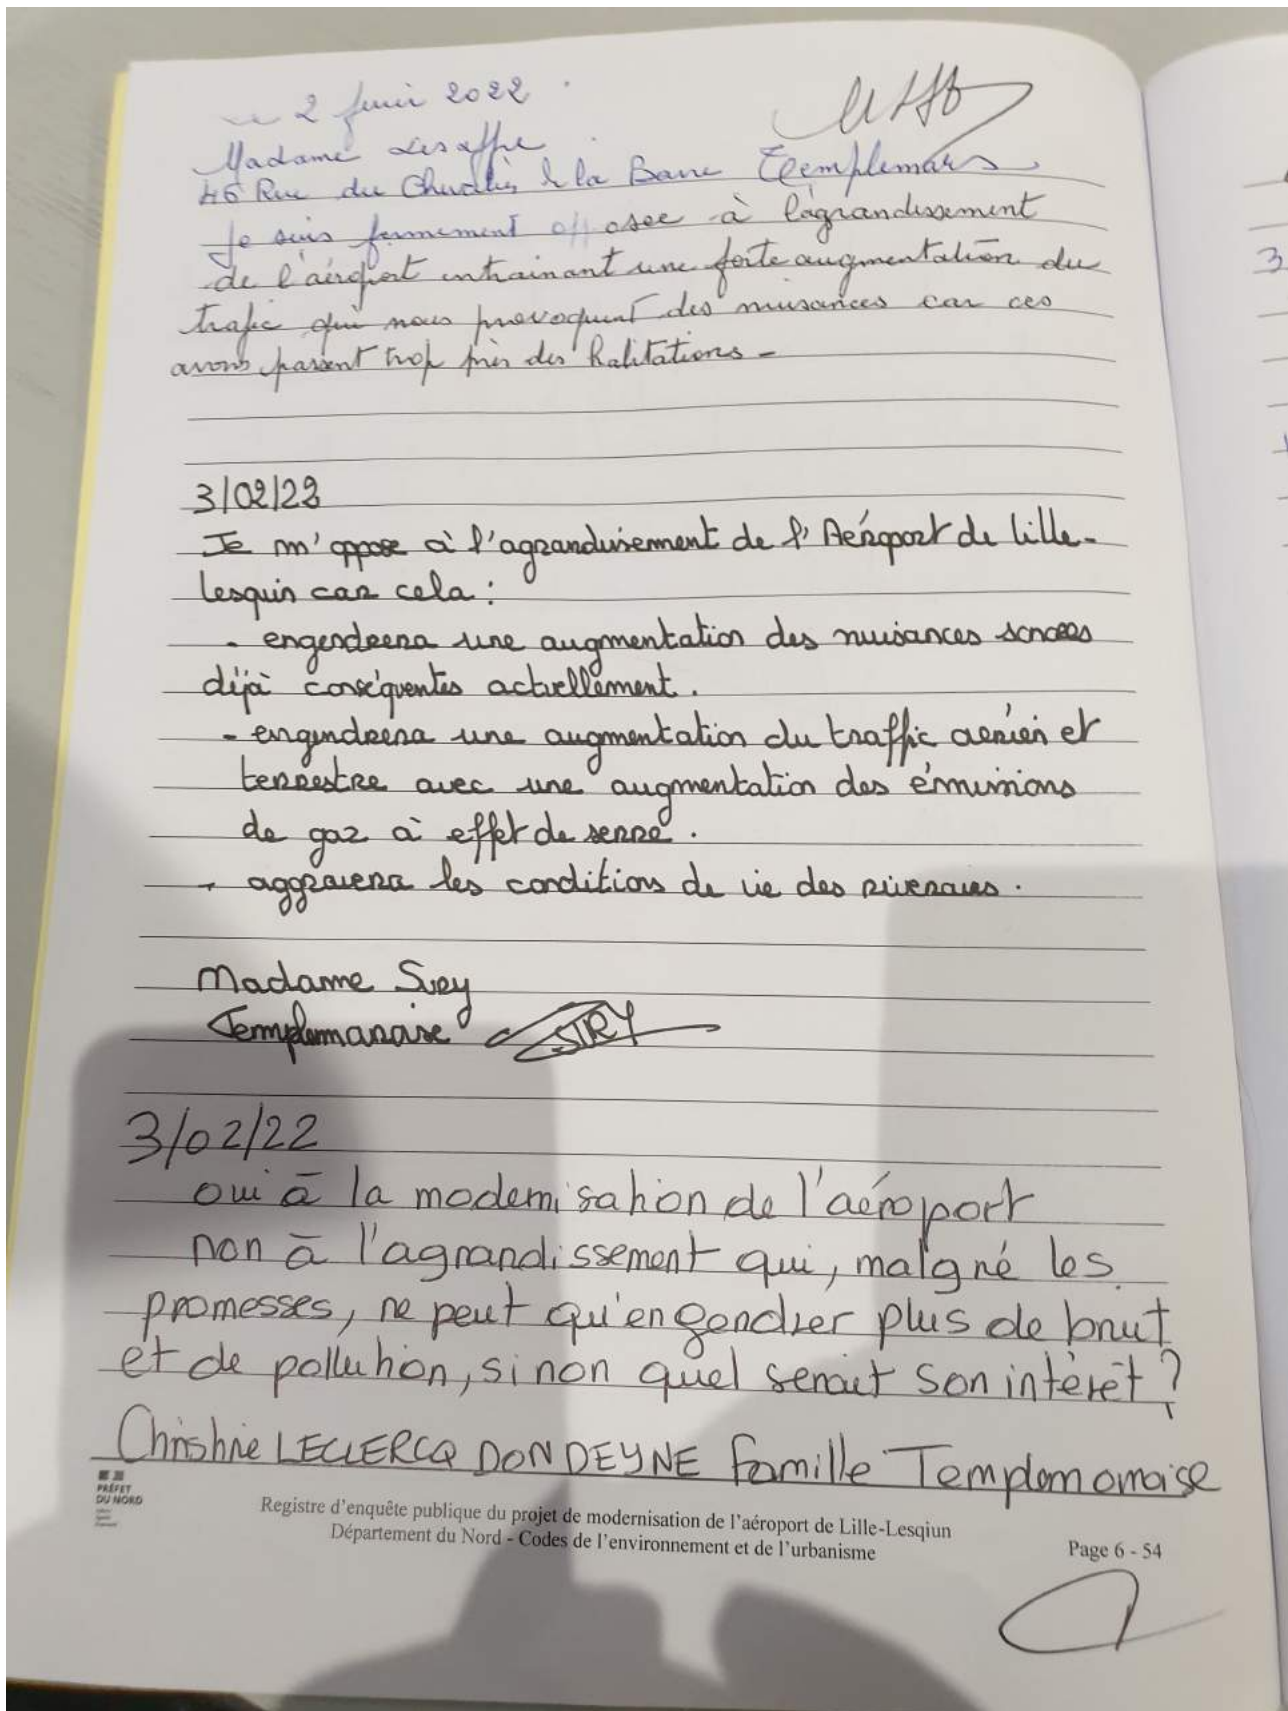 2 2022
Madame
46 Rue du la Templemars
Je suis fermement opposée à l'agrandissement
de l'aéroport entrainant une forte augmentation du
trafic qui nous provoquent des nuisances car ces
avions passent trop près des habitations -
3/02/22
Je m'oppose à l'agrandissement de l'Aéroport de Lille-
Lesquin car cela :
- engendrera une augmentation des nuisances sonores
déjà conséquentes actuellement.
- engendrera une augmentation du traffic aérien et
terrestre avec une augmentation des émissions
de gaz à effet de serre.
- aggravera les conditions de vie des riverains.
Madame
Templemaroise
3/02/22
oui à la modernisation de l'aéroport
non à l'agrandissement qui, malgré les
promesses, ne peut qu'engendrer plus de bruit
et de pollution, sinon quel serait son intérêt ?
Christine LECLERCQ DONDEYNE famille Templemaroise
PRÉFET
DU NORD
Registre d'enquête publique du projet de modernisation de l'aéroport de Lille-Lesqiun
Département du Nord - Codes de l'environnement et de l'urbanisme
Page 6 - 54
3